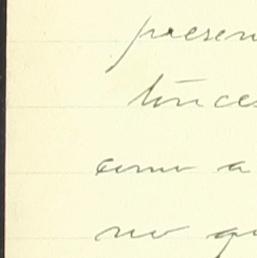 presen
tonces
como a
no qu